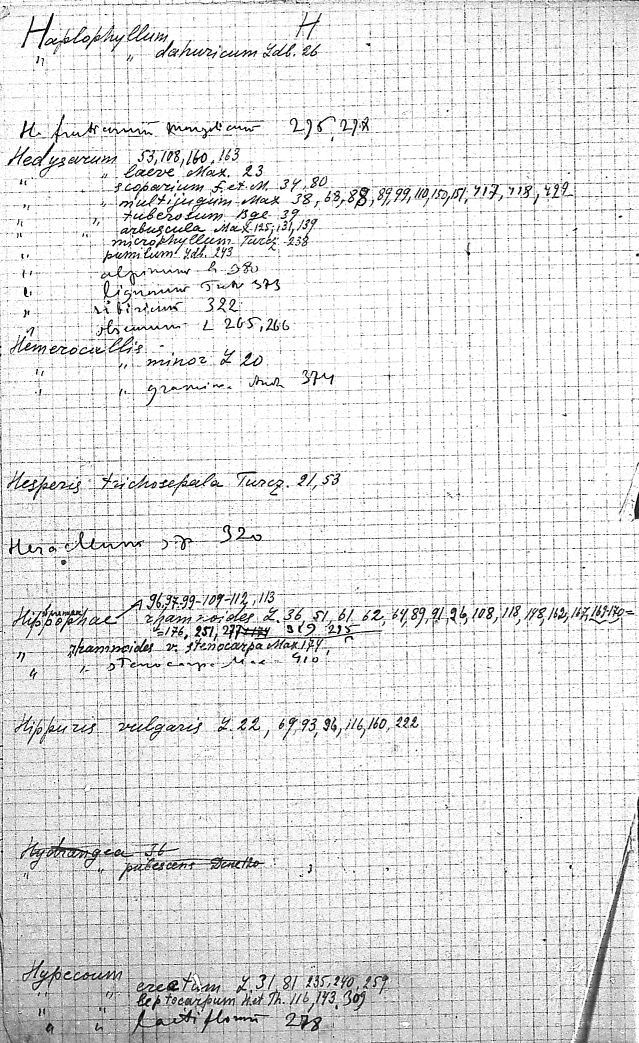 H
Haplophyllum
" " dahuricum Ldb. 26
H. fruticosum mongolicum 295, 298
Hedysarum 53, 108, 160, 163
" " laeve Max. 23
" scoparium F. et M. 34, 80
" " multijugum Max 38, 68, 88, 89, 99, 110, 150, 151, 417, 418, 422
" " tuberosum Bge 39
" " arbuscula Max 125, 131, 139
" microphyllum Turcz 238
" pumilum Ldb. 243
" alpinum L. 380
" lignosum 373
" sibiricum 322
" obscurum L 265, 266
Hemerocallis
" " minor L 20
" " graminea Andr 374
Hesperis trichosepala Turcz. 21, 53
Heracleum sp 320
96, 97, 99-109-112, 113
Hippophae rhamnoides L. 36, 51, 61, 62, 64, 89, 91, 96, 108, 118, 148, 162, 167, 169-170=
=176, 251, 319 295
" rhamnoides v. stenocarpa Max 174,
" " stenocarpa Max 410
Hippuris vulgaris L. 22, 69, 93, 96, 116, 160, 222
Hydrangea 36
" " pubescens Decne
Hypecoum erectum L 31 81 235, 240, 259
" " leptocarpum H et Th. 116, 143, 309
" " lactiflorum 278